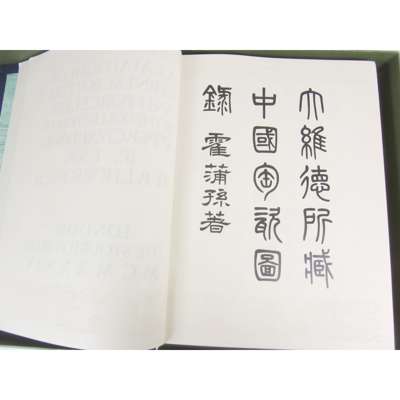 大維德所藏
中國匋瓷圖
錄 霍蒲孫著